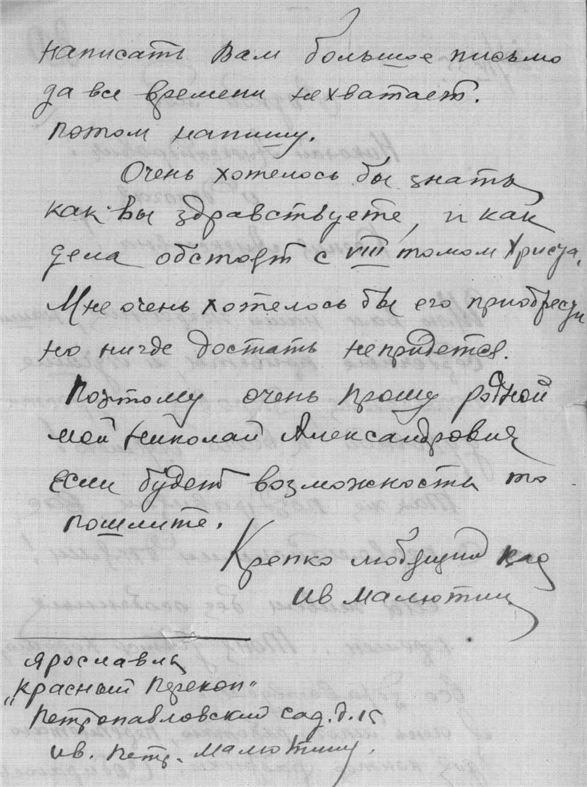 написать Вам большое письмо
да все времени нехватает.
потом напишу.
Очень хотелось бы знать
как вы здравствуете, и как
дела обстоят с VIII томом Христа.
Мне очень хотелось бы его приобрести
но нигде достать непридется.
Поэтому очень прошу родной
мой Николай Александрович
если будет возможность то
пошлите.
Крепко любящий вас
Ив Малютин
Ярославль
"Красный Перекоп"
Петропавловский сад. д. 15
Ив. Петр. Малютину.